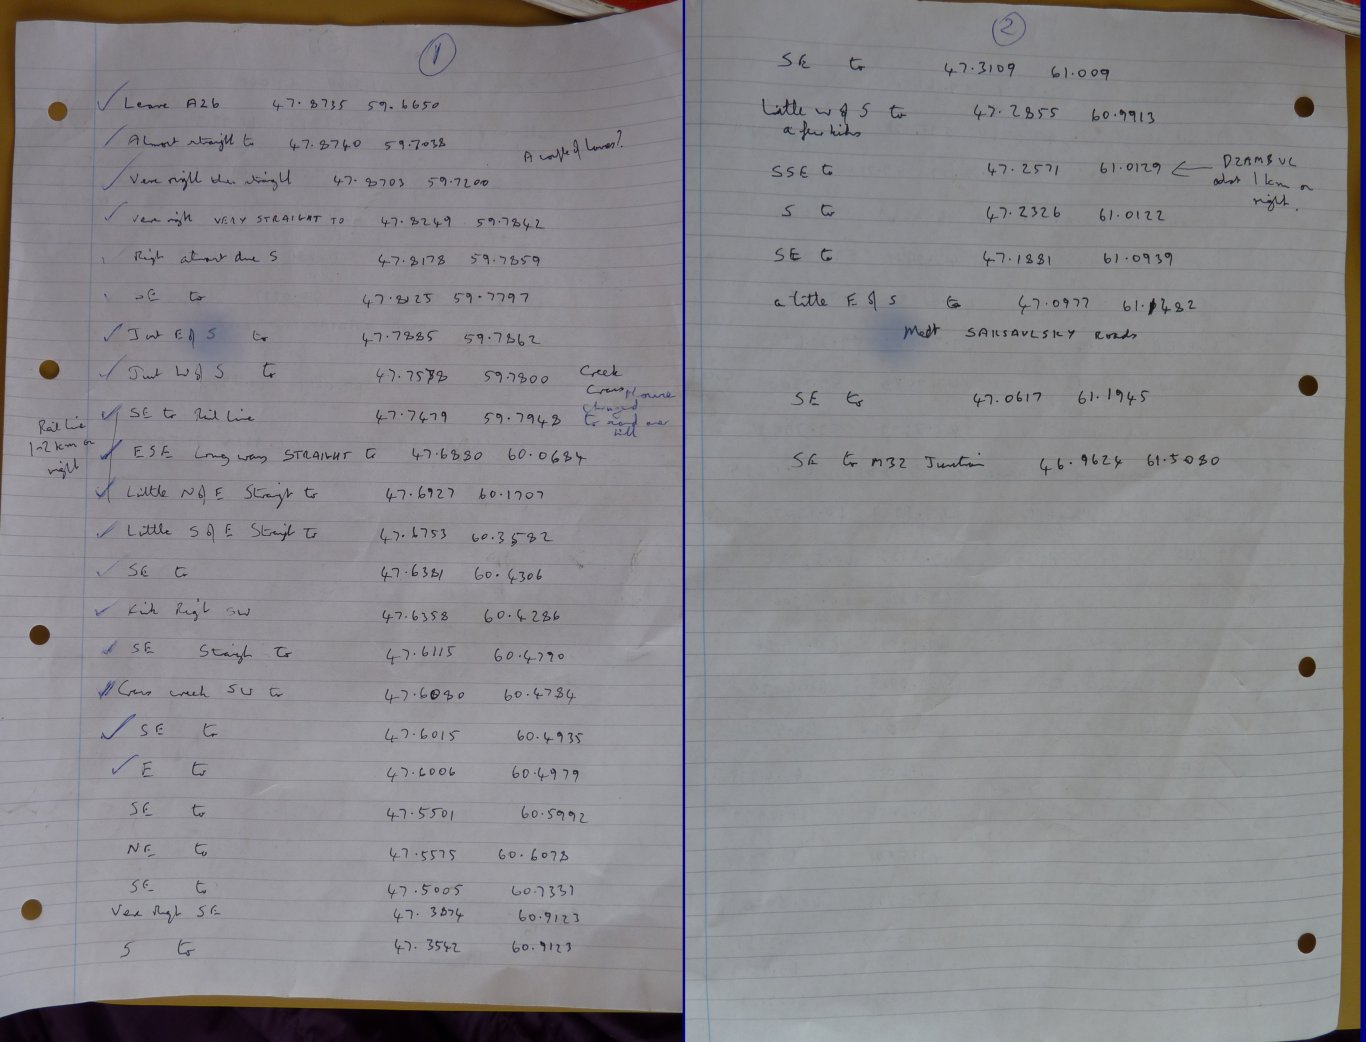 1
Leave A26 47.8735 59.6650
Almost straight to 47.8740 59.7038
A couple of lanes?
Veer right then straight 47.8703 59.7200
Veer right VERY STRAIGHT TO 47.8249 59.7842
Right almost due S 47.8178 59.7859
SE to 47.8125 59.7797
Just E of S to 47.7885 59.7862
Just W of S to 47.7578 59.7800 Creek
Cross
changed
SE to Rail Line 47.7479 59.7948 to road over
hill
Rail Line
1-2 km on
right
ESE Long ways STRAIGHT to 47.6880 60.0684
Little N of E Straight to 47.6927 60.1707
Little S of E Straight to 47.6753 60.3582
SE to 47.6381 60.4306
Kink Right SW 47.6358 60.4286
SE Straight to 47.6115 60.4790
Cross creek SW to 47.6080 60.4784
SE to 47.6015 60.4935
E to 47.6006 60.4979
SE to 47.5501 60.5992
NE to 47.5575 60.6078
SE to 47.5005 60.7337
Veer Right SE 47.3874 60.9123
S to 47.3542 60.9123
2
SE to 47.3109 61.009
Little W of S to 47.2855 60.9913
a few kinks
SSE to 47.2571 61.0129 ← DZAMBUL
about 1 km on
right.
S to 47.2326 61.0122
SE to 47.1881 61.0939
a little E of S to 47.0977 61.1482
Meet SAKSAULSKY Roads
SE to 47.0617 61.1945
SE to M32 Junction 46.9624 61.5080